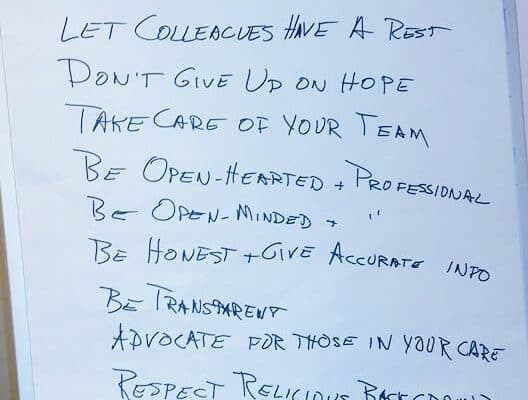 LET COLLEAGUES HAVE A REST
DON'T GIVE UP ON HOPE
TAKE CARE OF YOUR TEAM
BE OPEN-HEARTED + PROFESSIONAL
BE OPEN-MINDED + "
BE HONEST + GIVE ACCURATE INFO
BE TRANSPARENT
ADVOCATE FOR THOSE IN YOUR CARE
RESPECT RELIGIOUS